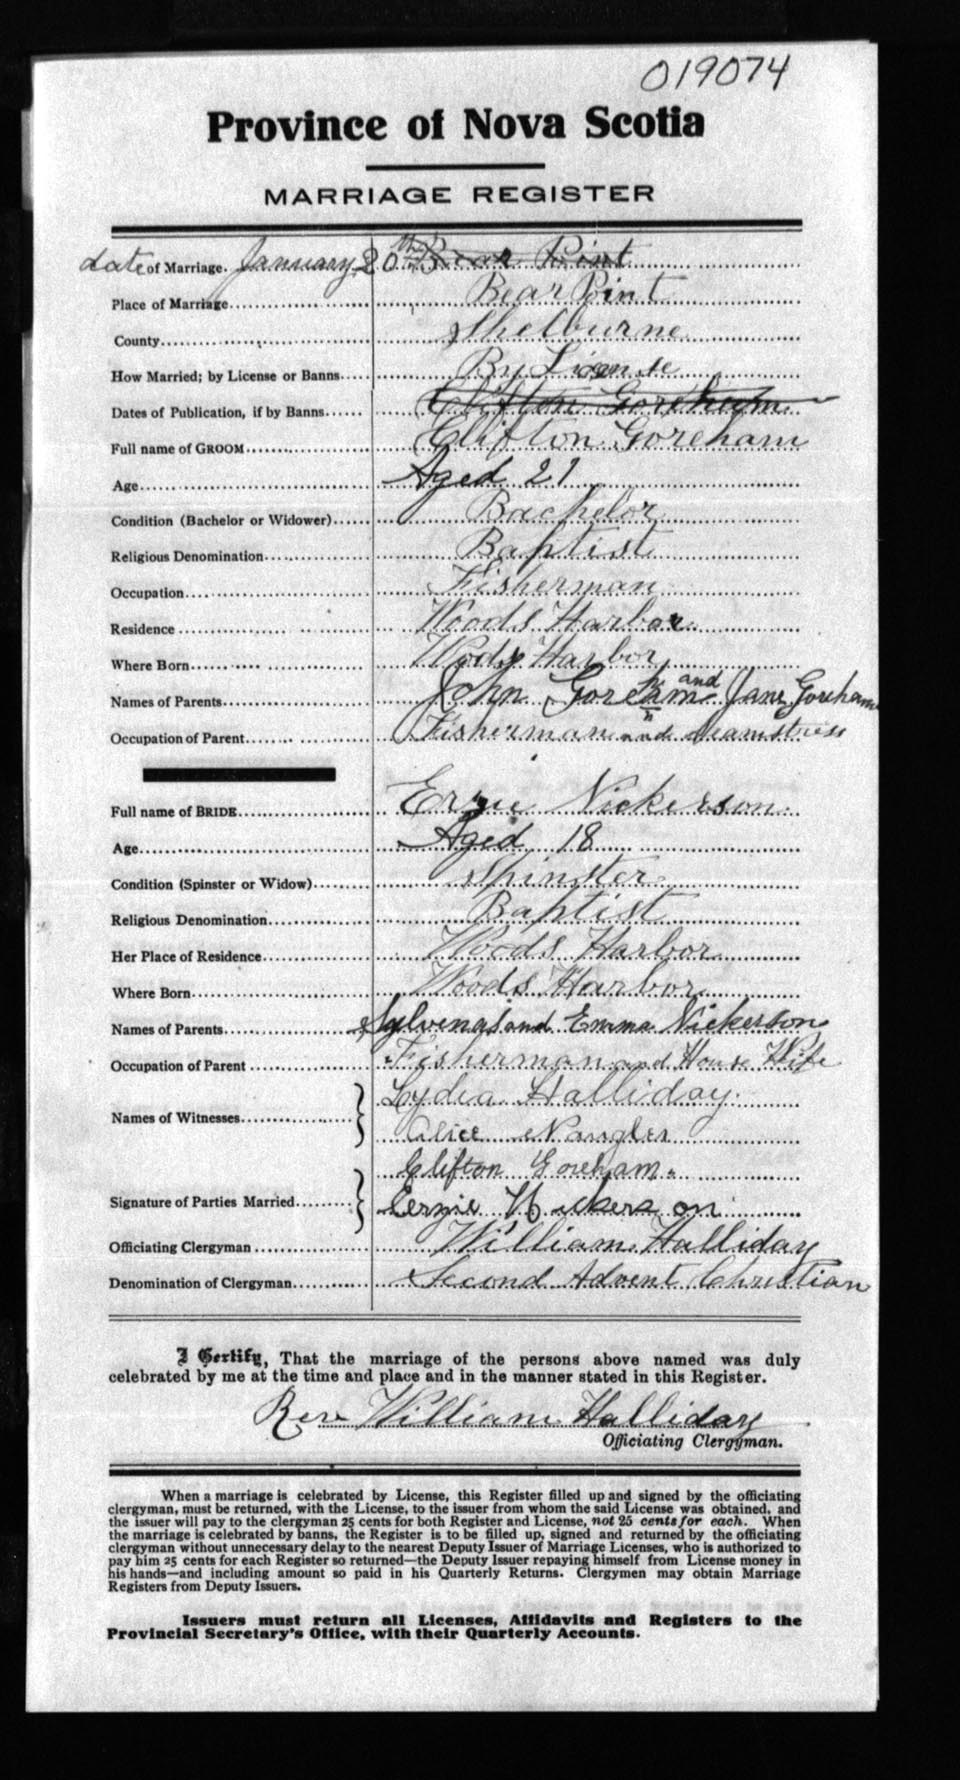 019074
Province of Nova Scotia
MARRIAGE REGISTER
date of Marriage. January 20th Bear Point
Place of Marriage Bear Point
County Shelburne
How Married; by License or Banns By License
Dates of Publication, if by Banns Clifton Goreham
Full name of GROOM Clifton Goreham
Age Aged 21
Condition (Bachelor or Widower) Bachelor
Religious Denomination Baptist
Occupation Fisherman
Residence Woods Harbor
Where Born Woods Harbor
Names of Parents John Goreham and Jane Goreham
Occupation of Parent Fisherman and Seamstress
Full name of BRIDE Erzie Nickerson
Age Aged 18
Condition (Spinster or Widow) Spinster
Religious Denomination Baptist
Her Place of Residence Woods Harbor
Where Born Woods Harbor
Names of Parents Sylvenas and Emma Nickerson
Occupation of Parent Fisherman and House Wife
Lydia Halliday
Names of Witnesses
Alice Nangler
Clifton Goreham.
Signature of Parties Married Eerzie Nickerson
Officiating Clergyman William Halliday
Denomination of Clergyman Second Advent Christian
I Certify, That the marriage of the persons above named was duly
celebrated by me at the time and place and in the manner stated in this Register.
Rev William Halliday
Officiating Clergyman.
When a marriage is celebrated by License, this Register filled up and signed by the officiating
clergyman, must be returned, with the License, to the issuer from whom the said License was obtained, and
the issuer will pay to the clergyman 25 cents for both Register and License, not 25 cents for each. When
the marriage is celebrated by banns, the Register is to be filled up, signed and returned by the officiating
clergyman without unnecessary delay to the nearest Deputy Issuer of Marriage Licenses, who is authorized to
pay him 25 cents for each Register so returned—the Deputy Issuer repaying himself from License money in
his hands—and including amount so paid in his Quarterly Returns. Clergymen may obtain Marriage
Registers from Deputy Issuers.
Issuers must return all Licenses, Affidavits and Registers to the
Provincial Secretary's Office, with their Quarterly Accounts.